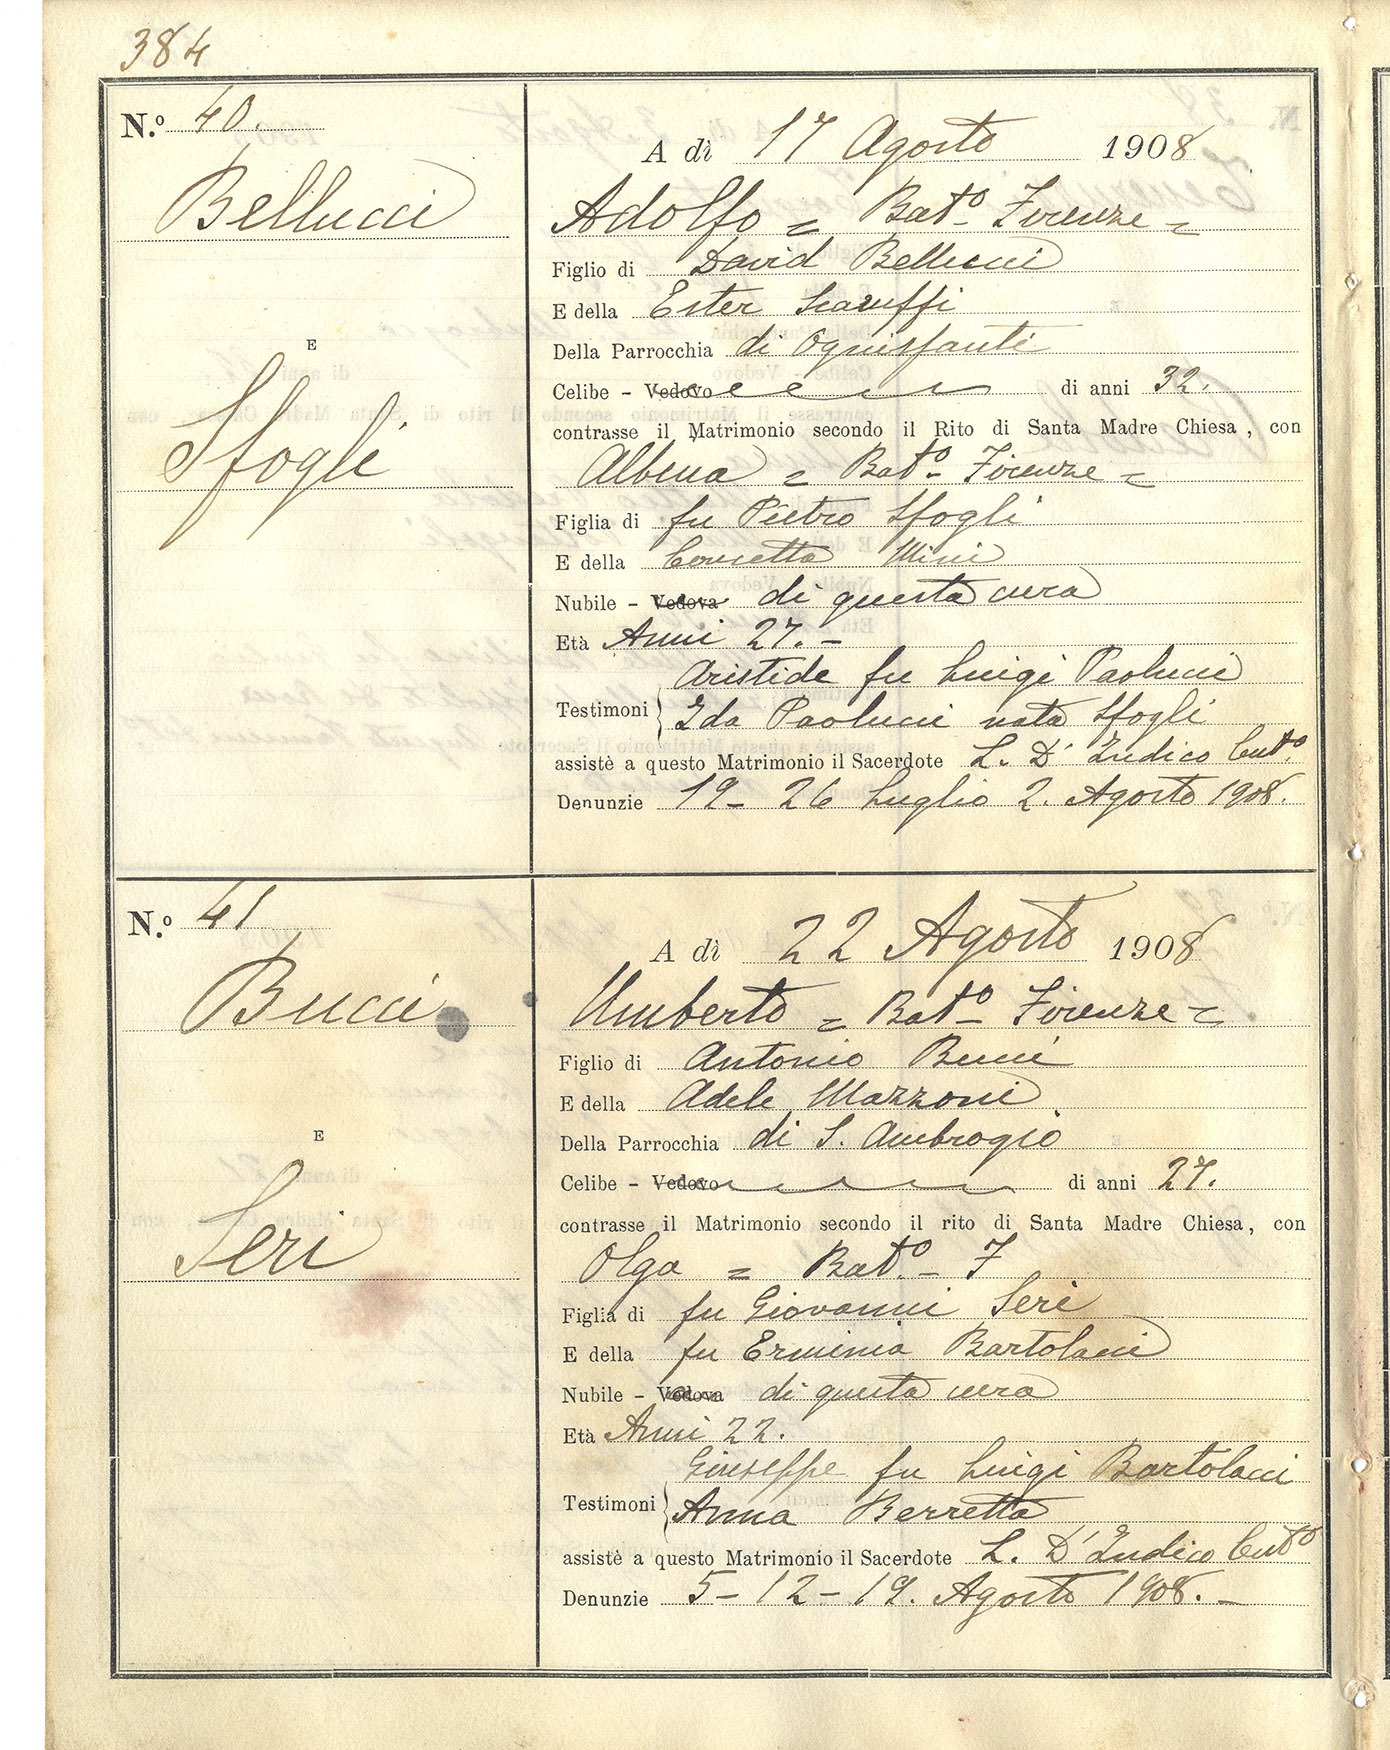 384
N.º 40.
Bellucci
E
Sfogli
A dì 17 Agosto 1908
Adolfo = Batº Firenze =
Figlio di David Bellucci
E della Ester Scaruffi
Della Parrocchia di Ognissanti
Celibe - Vedovo di anni 32.
contrasse il Matrimonio secondo il Rito di Santa Madre Chiesa, con
Albina = Batº Firenze =
Figlia di fu Pietro Sfogli
E della Concetta Mini
Nubile - Vedova di questa cura
Età Anni 27. -
Aristide fu Luigi Paolucci
Testimoni Ida Paolucci nata Sfogli
assistè a questo Matrimonio il Sacerdote L. D' Indico Cutº
Denunzie 19 - 26 Luglio 2. Agosto 1908.
N.º 41
Bucci
E
Seri
A dì 22 Agosto 1908
Umberto = Batº Firenze =
Figlio di Antonio Bucci
E della Adele Mazzoni
Della Parrocchia di S. Ambrogio
Celibe - Vedovo di anni 27.
contrasse il Matrimonio secondo il rito di Santa Madre Chiesa, con
Olga = Batº - F
Figlia di fu Giovanni Seri
E della fu Erminia Bartolacci
Nubile - Vedova di questa cura
Età Anni 22.
Giuseppe fu Luigi Bartolacci
Testimoni Anna Berretta
assistè a questo Matrimonio il Sacerdote L. D' Indico Cutº
Denunzie 5 - 12 - 19. Agosto 1908. -